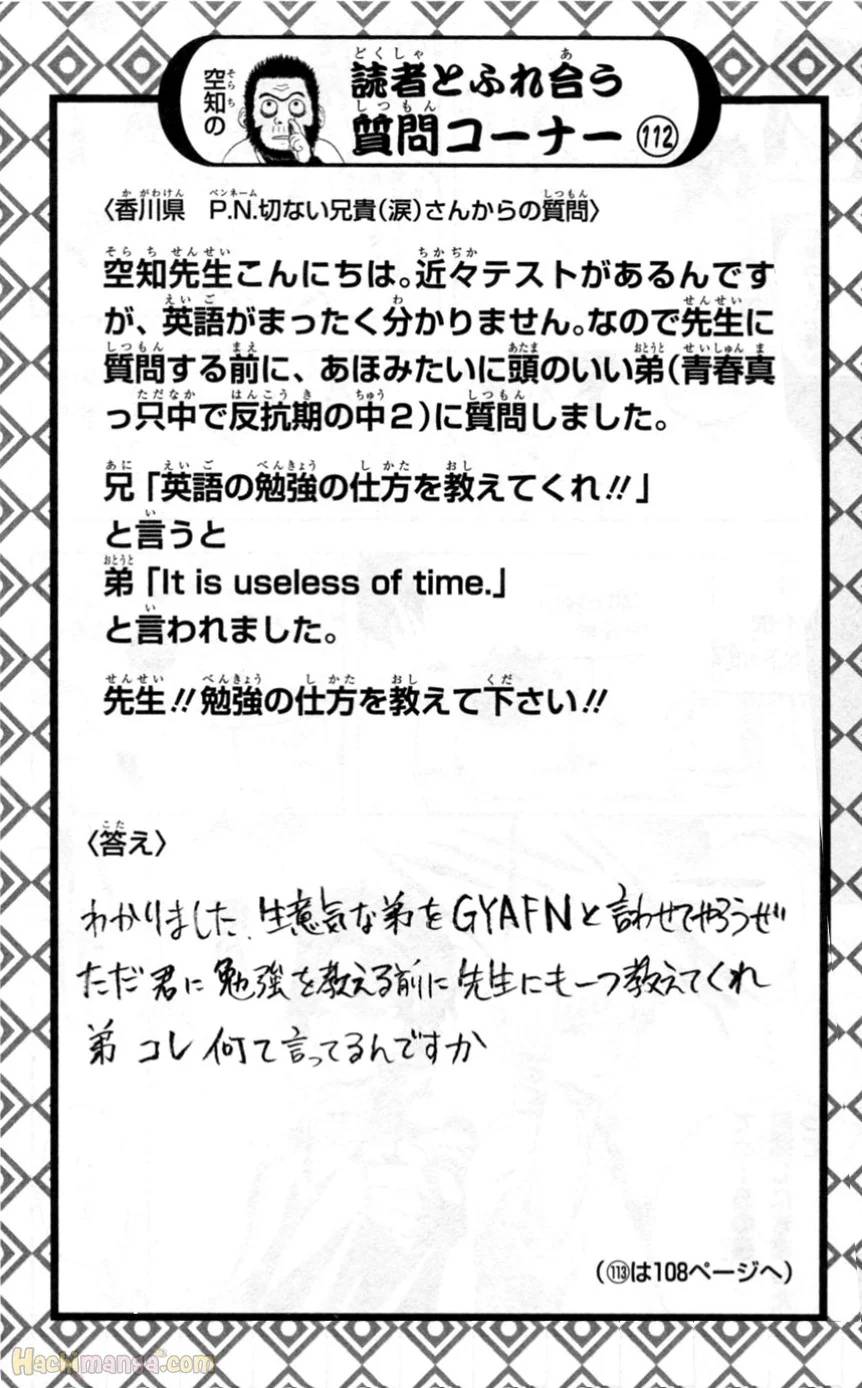 空知の
読者とふれ合う
質問コーナー 112
〈香川県 P.N.切ない兄貴(涙)さんからの質問〉
空知先生こんにちは。近々テストがあるんです
が、英語がまったく分かりません。なので先生に
質問する前に、あほみたいに頭のいい弟(青春真
っ只中で反抗期の中2)に質問しました。
兄「英語の勉強の仕方を教えてくれ!!」
と言うと
弟「It is useless of time.」
と言われました。
先生!!勉強の仕方を教えて下さい!!
〈答え〉
わかりました、生意気な弟をGYAFNと言わせてやろうぜ
ただ君に勉強を教える前に先生にも一つ教えてくれ
弟 コレ 何て言ってるんですか
(113は108ページへ)
Hachimanga.com